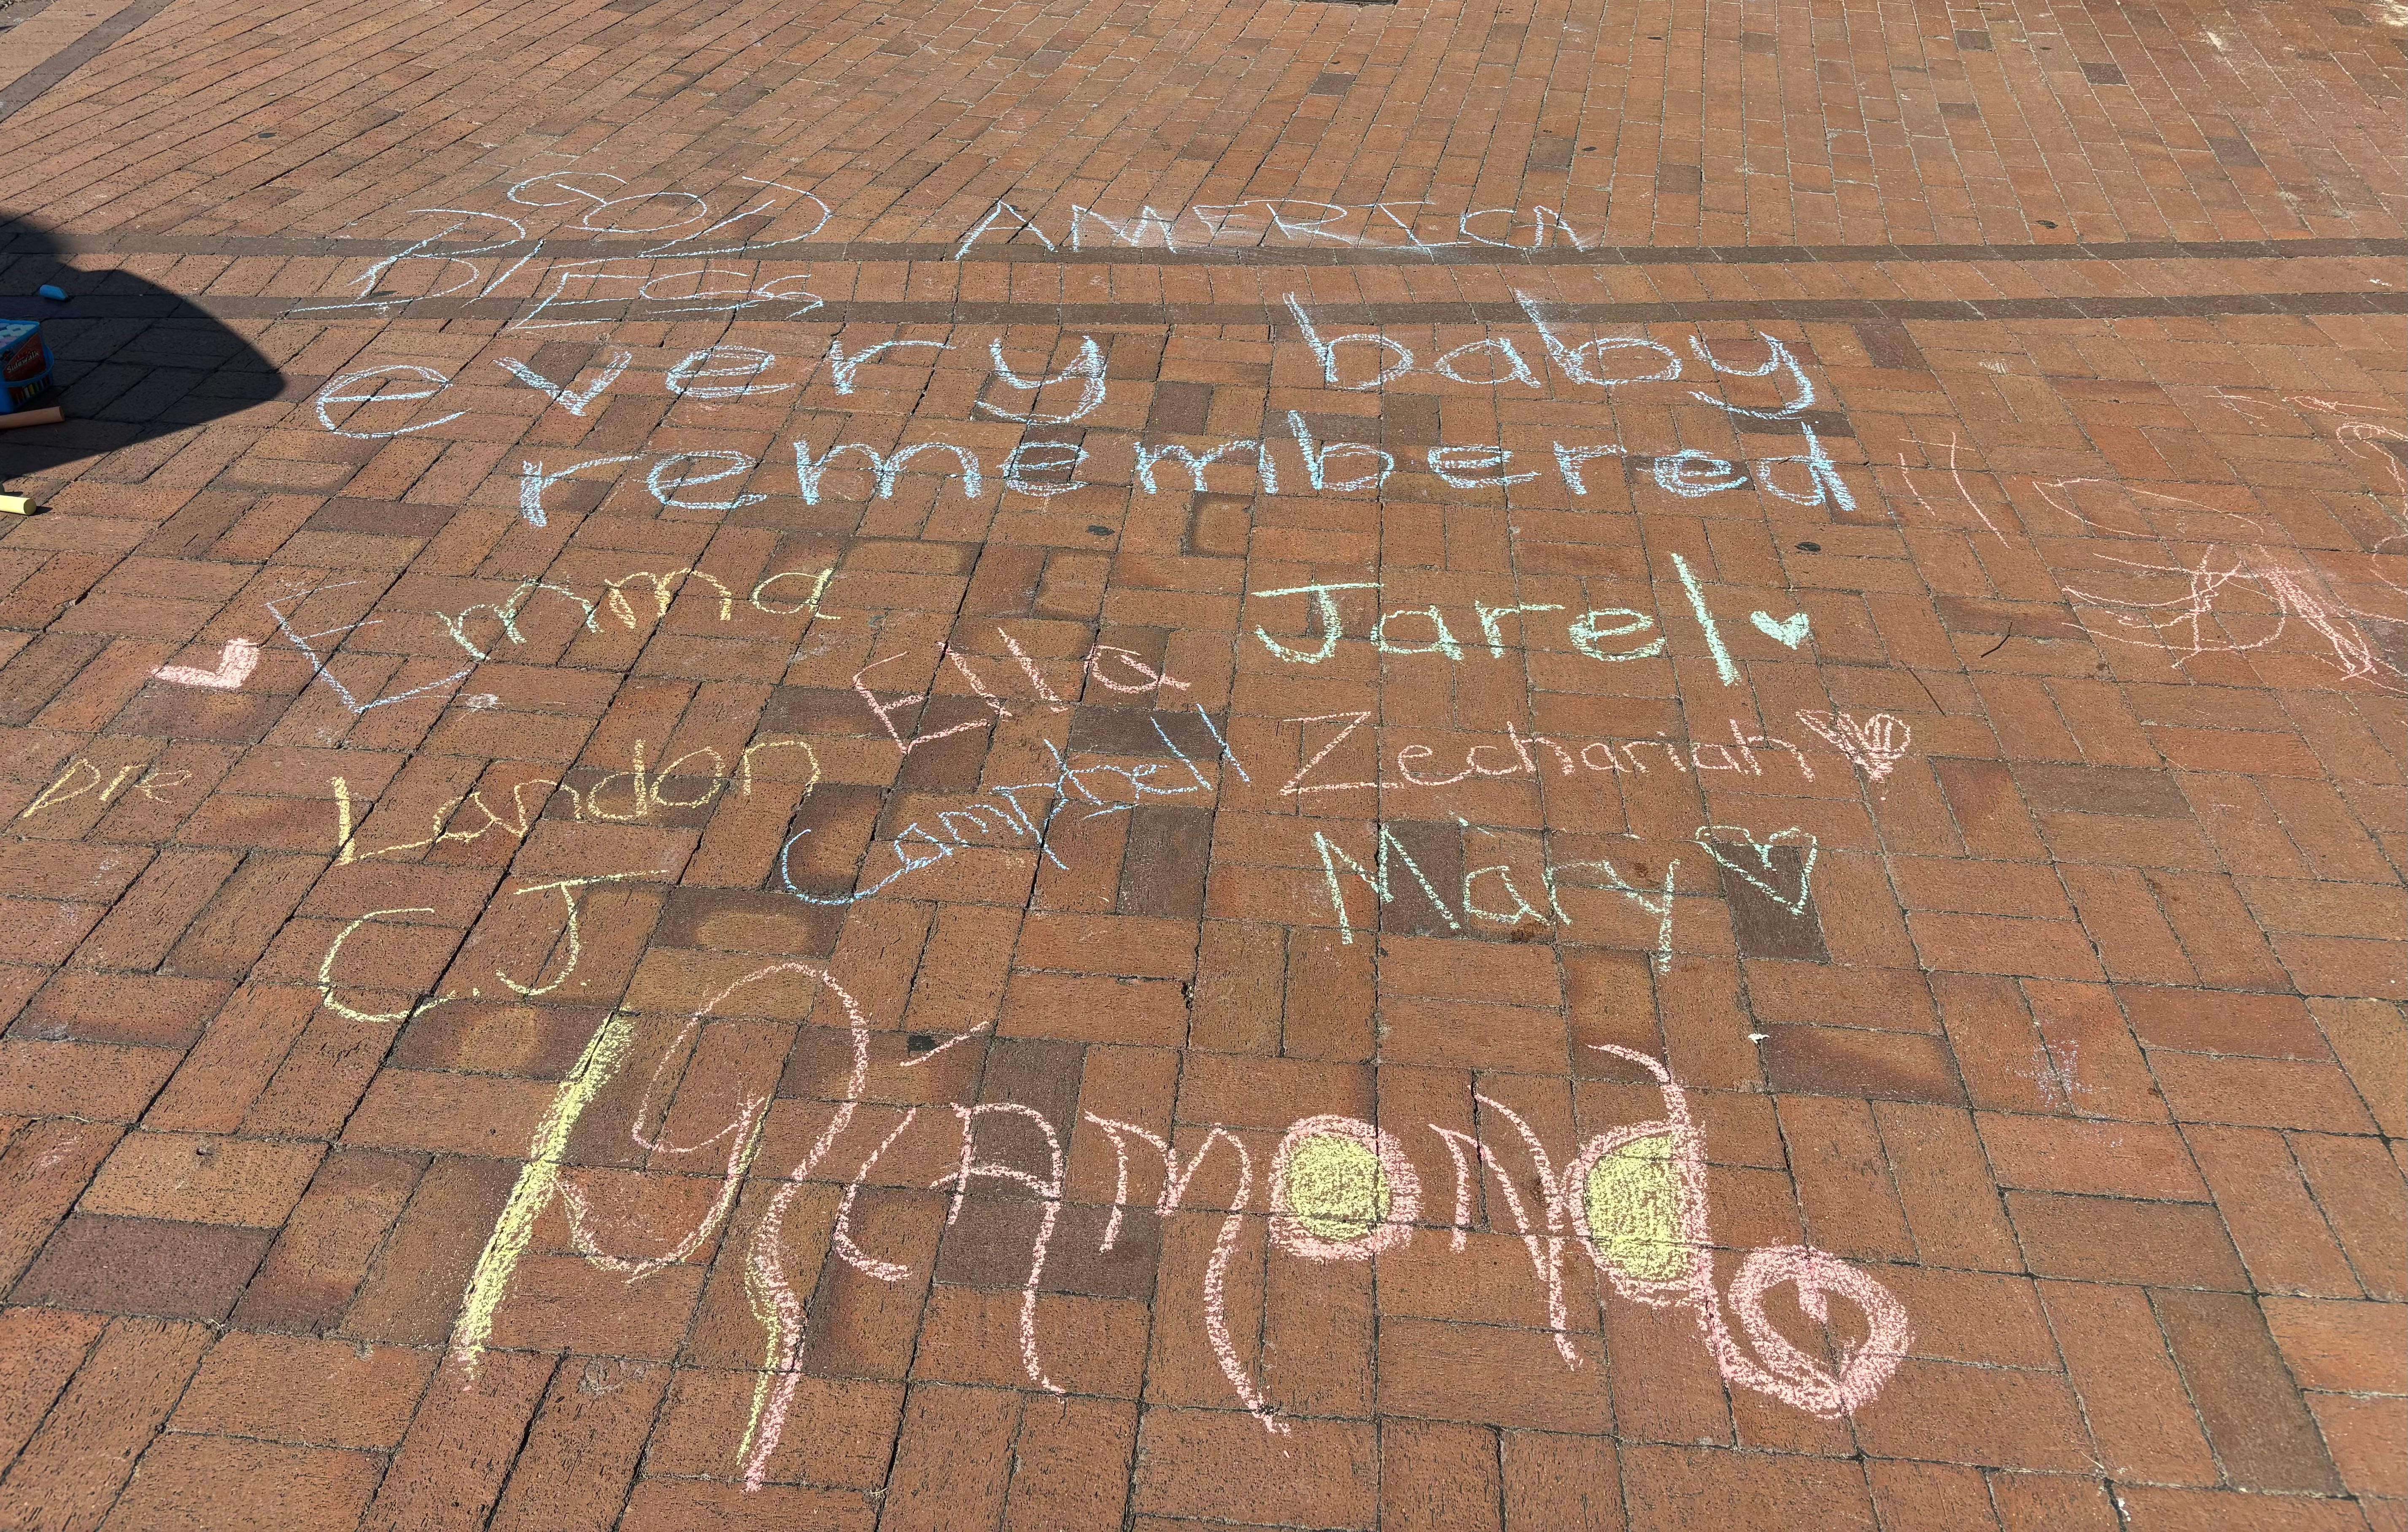 GOD
BLESS AMERICA
every baby
remembered
Emma
Jarel
Ella
Landon
Campbell
Zechariah
C.J.
Mary
Diamond